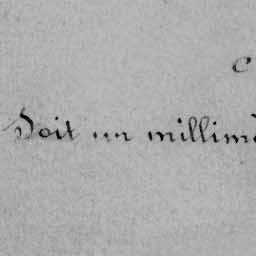 c
Soit un millimè